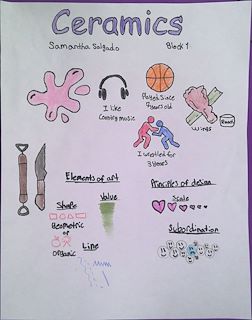 Ceramics
Samantha Salgado
Block 1
I like
Country music
Played since
7 years old
I wrestled for
3 years
Wings
Ranch
Elements of art
Principles of design
Shape
Value
Scale
Geometric
or
Organic
Line
Subordination